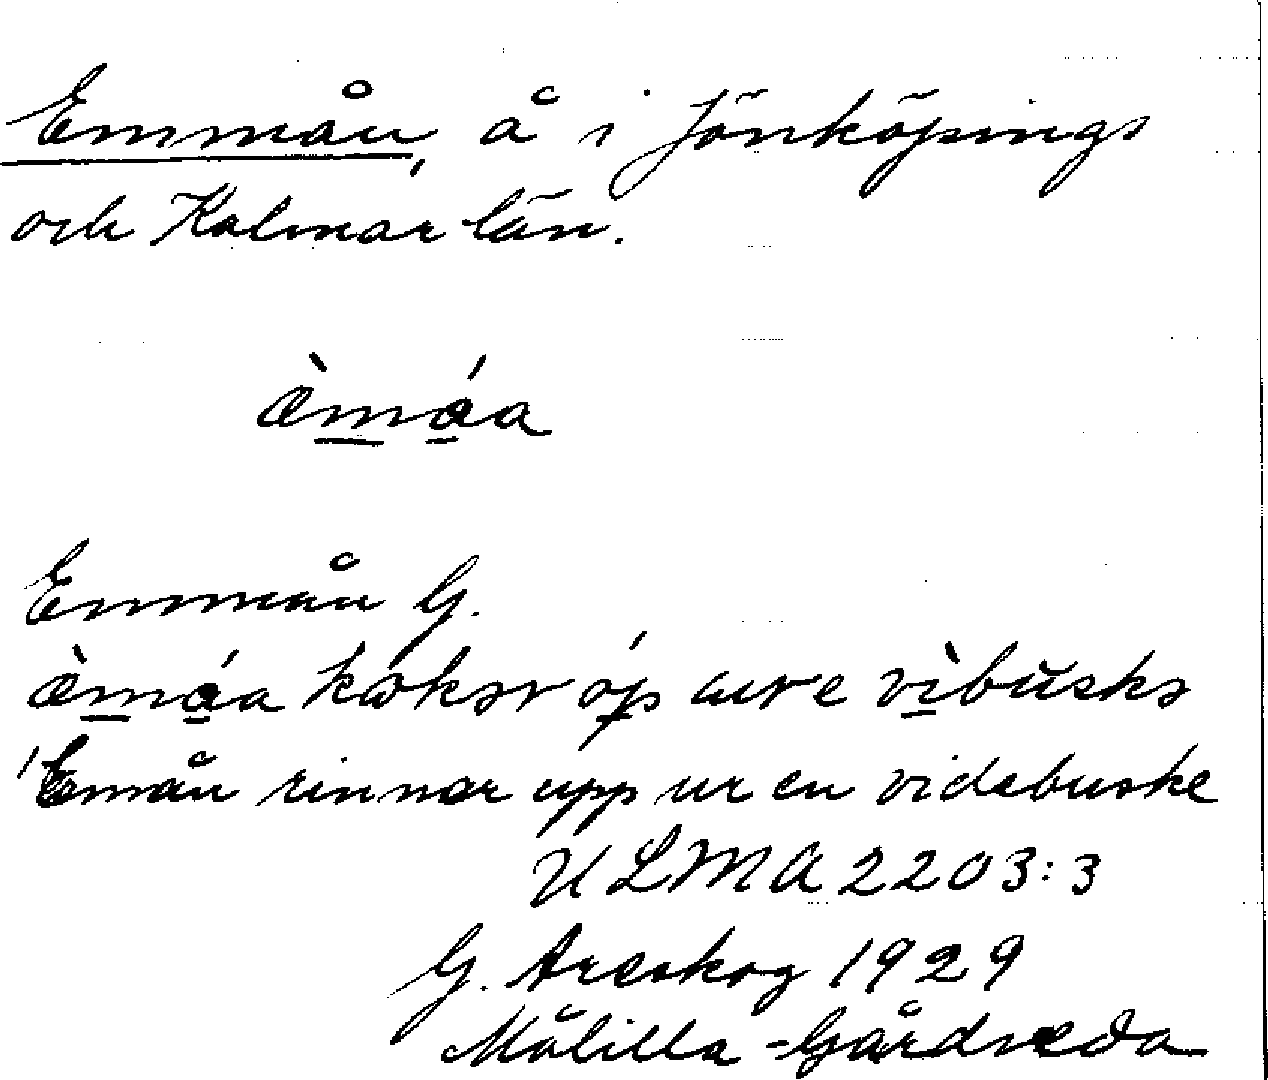 Emmån, å i Jönköpings
och Kalmar län.
æ̀máa
Emmån G.
æ̀máa kokar óp ure vìbusks
'Emån rinnar upp ur en videbuske
ULMA 2203:3
G. Areskog 1929
Målilla-Gårdveda